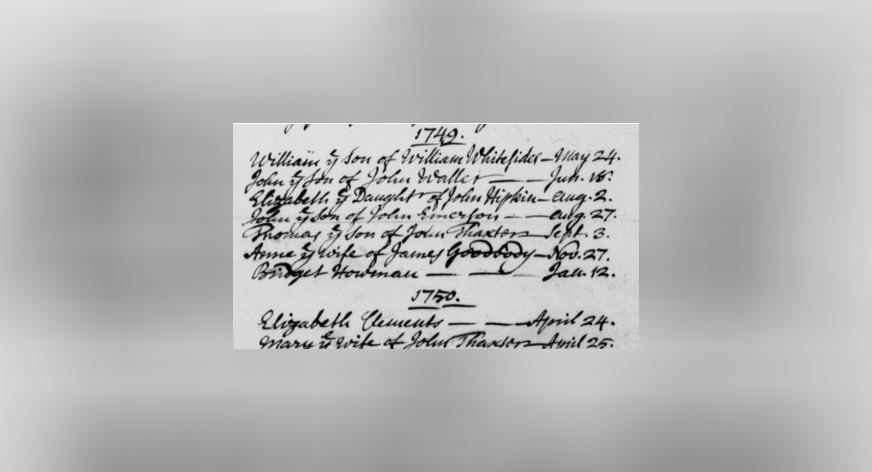 1749.
William ye Son of William Whitesides — May 24.
John ye Son of John Waller — Jun. 18.
Elizabeth ye Daught'r of John Hipkin — Aug. 2.
John ye Son of John Emerson — — Aug. 27.
Thomas ye Son of John Thaxter — Sept. 3.
Anne ye Wife of James Goodbody — Nov. 27.
Bridget Howman — — — Jan. 12.
1750.
Elizabeth Clements — — April 24.
Mary ye Wife of John Thaxter — April 25.